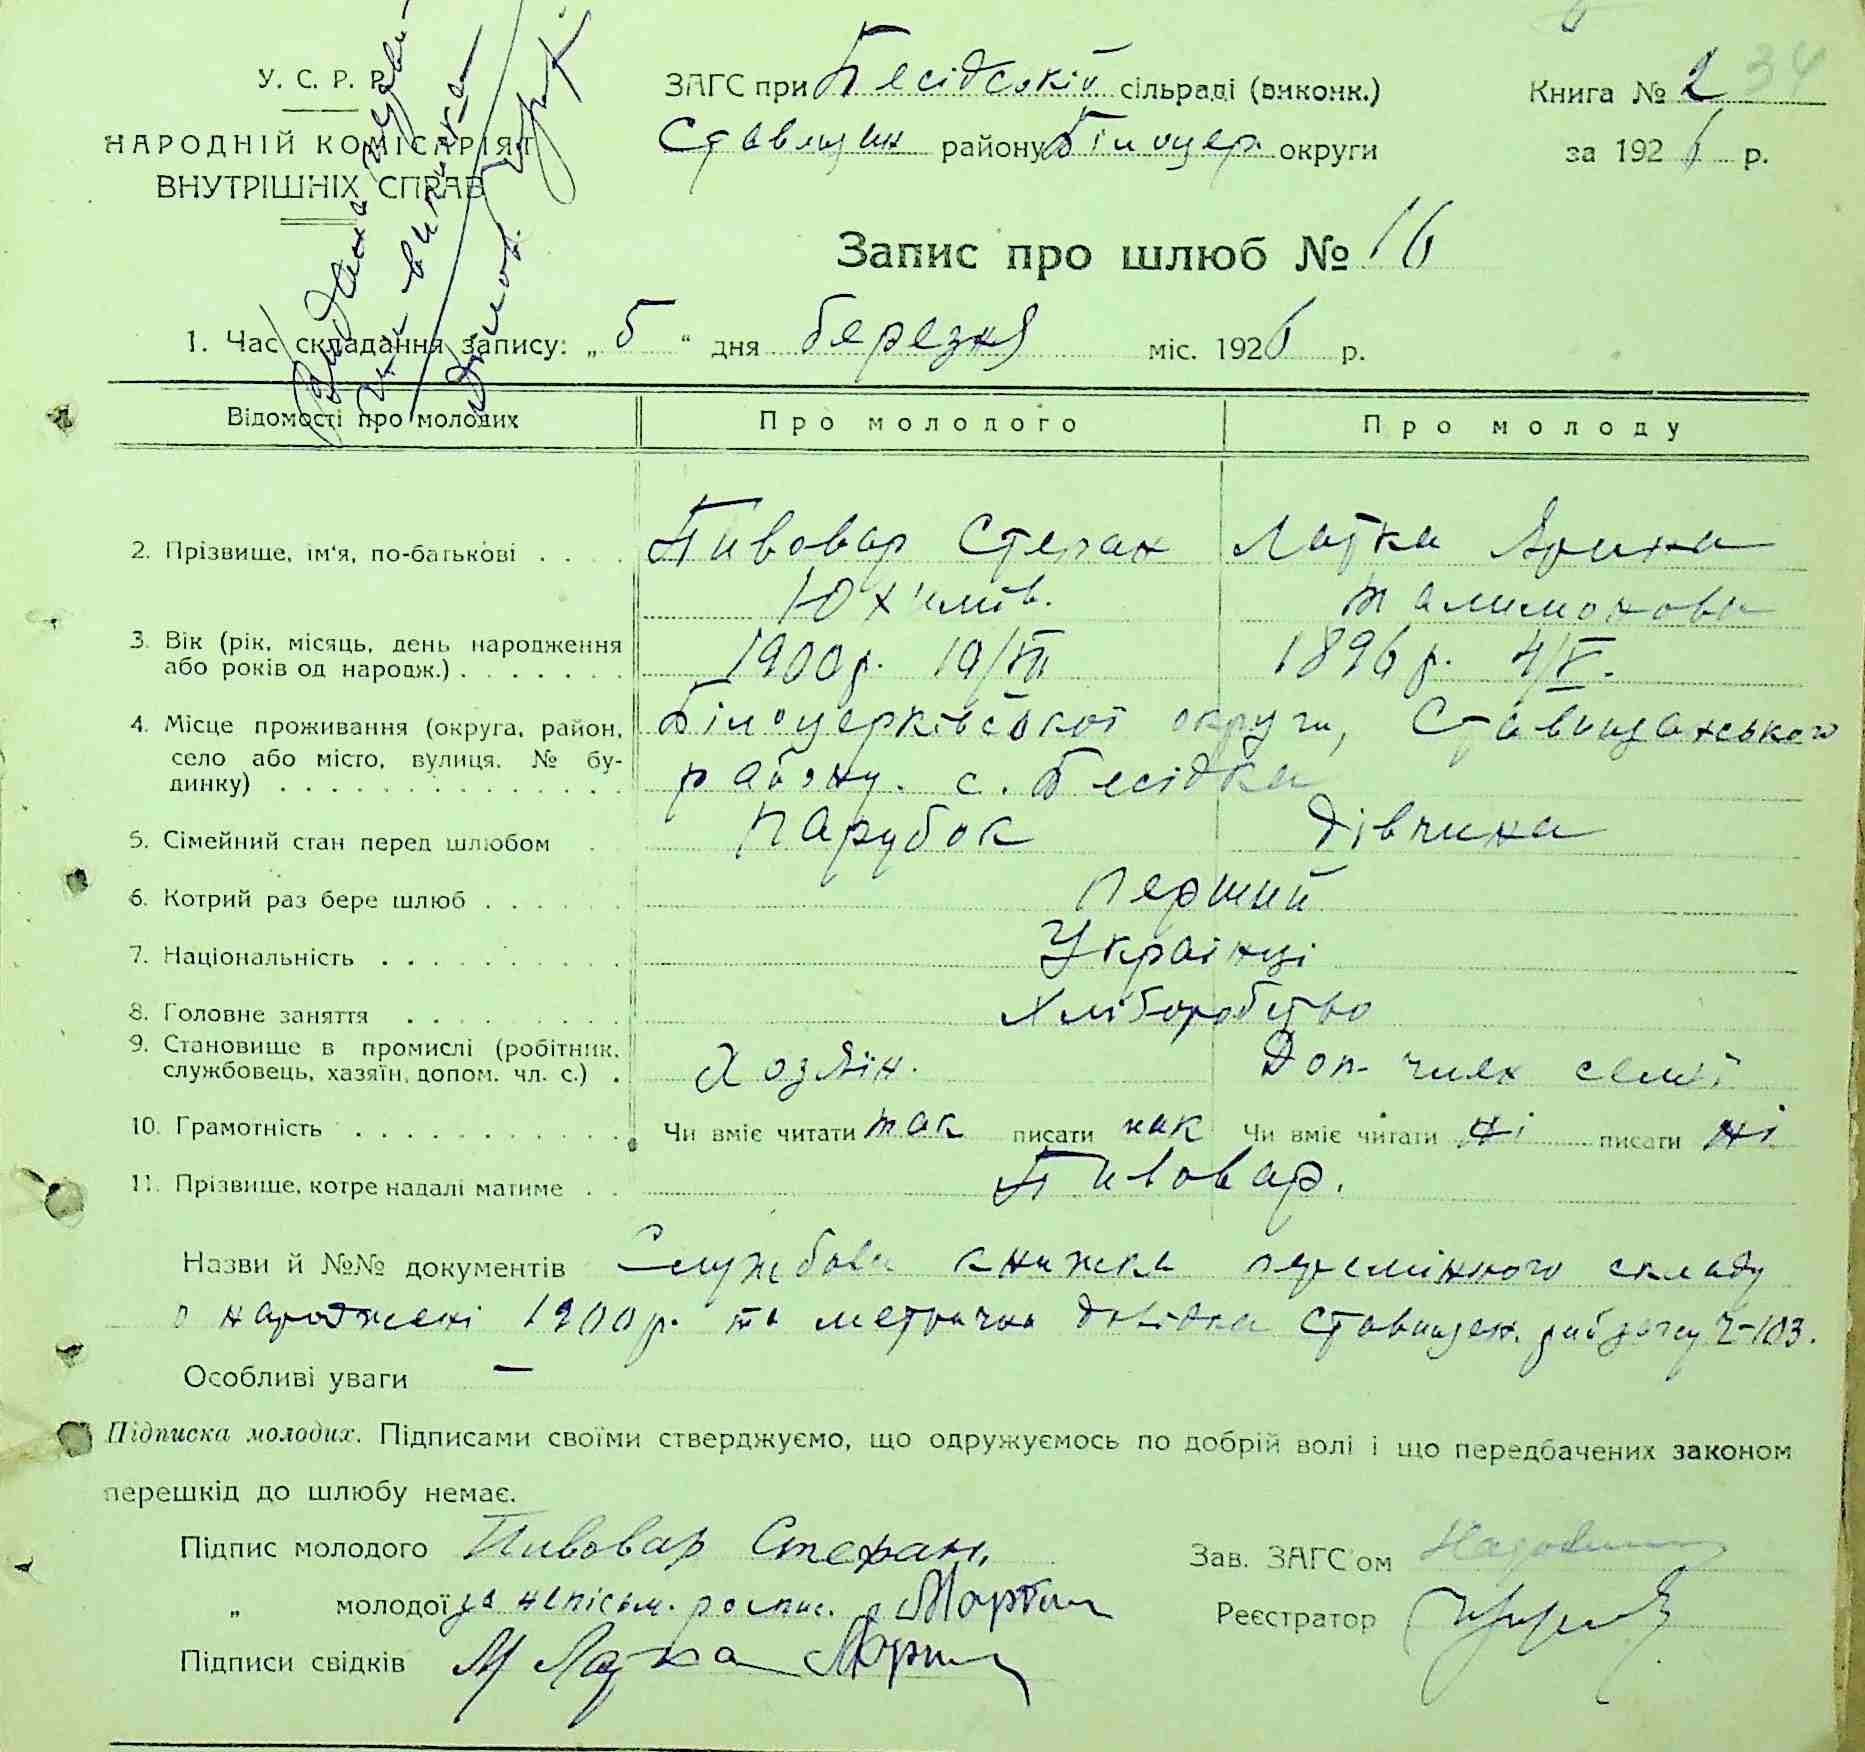 У. С. Р. Р.
НАРОДНІЙ КОМІСАРІЯТ
ВНУТРІШНІХ СПРАВ
Видана
ЗАГС при Бесідській сільраді (виконк.)
Ставищан району Білоцер. округи
Книга № 2 34
за 1926 р.
Запис про шлюб № 16
1. Час складання запису: „ 5 “ дня березня міс. 1926 р.
Відомості про молодих Про молодого Про молоду
2. Прізвище, ім'я, по-батькові . . . . Пивовар Степан Латка Ярина
Юх'имів. Талимонова
3. Вік (рік, місяць, день народження
або років од народж.) . . . . . . . 1900 р. 19/VII 1896 р. 4/V.
4. Місце проживання (округа, район, Білоцерківської округи, Ставищанського
село або місто, вулиця, № бу- району. с. Бесідка
динку) . . . . . . . . . . . . . .
5. Сімейний стан перед шлюбом . Парубок дівчина
6. Котрий раз бере шлюб . . . . . . перший
7. Національність . . . . . . . . . . Українці
8. Головне заняття . . . . . . . . . Хліборобство
9. Становище в промислі (робітник, Хозяїн. Доп. член семї
службовець, хазяїн, допом. чл. с.) .
10. Грамотність . . . . . . . . . . . Чи вміє читати так писати так Чи вміє читати ні писати ні
11. Прізвище, котре надалі матиме . . Пивовар.
Назви й №№ документів Службова книжка перемінного складу
о народжені 1900 р. та метрична довідка Ставищен. Ч-103.
Особливі уваги —
Підписка молодих. Підписами своїми стверджуємо, що одружуємось по добрій волі і що передбачених законом
перешкід до шлюбу немає.
Підпис молодого Пивовар Степан,
„ молодої за непісьм. роспис.
Підписи свідків М Латка
Зав. ЗАГС'ом
Реєстратор